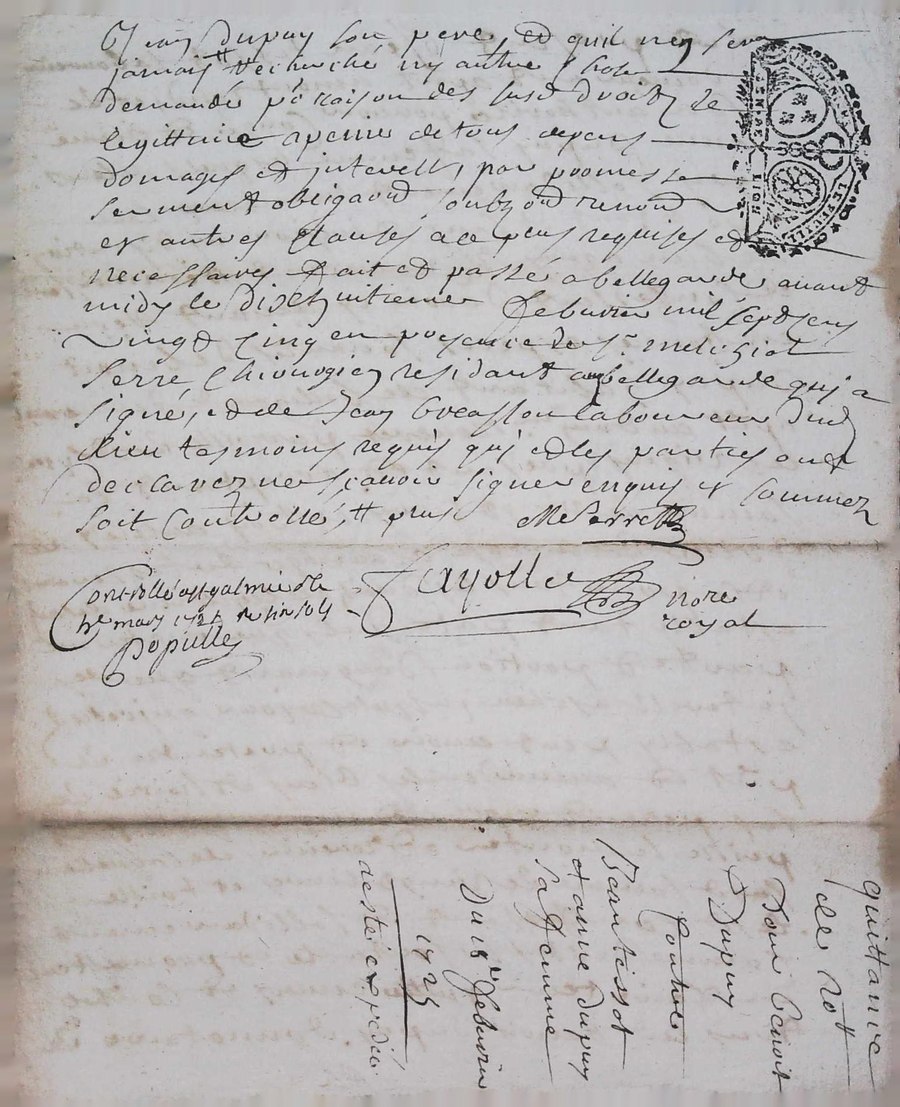 Jean Dupuy son pere, et quil ney sera
jamais recherché ny autre chose
demandé pr raison des susd droitz de
legittime a peine de tous depens
domages et interestz, par promesse
serment obligaon soubzon renon
et autres clauses a ce plus requises et
necessaires fait et passé a bellegarde avant
midy le dixhuitieme febvrier mil sept cens
vingt cinq en presence de sr. melchiol
serre, chirurgien residant a bellegarde qui a
signé, et de Jean laboureur dud
lieu tesmoins requis qui et les parties ont
declarez ne sçavoir signer enquis et sommez
soit controllé, plus MeSerre
fayolle nore
royal
Controllé a st galmier le
mars 1725 sols
Populle
quittance
de 20tt
Dom benoit
Dupuy
Contre
et anne dupuy
sa femme
Du 18e febvrier
1725